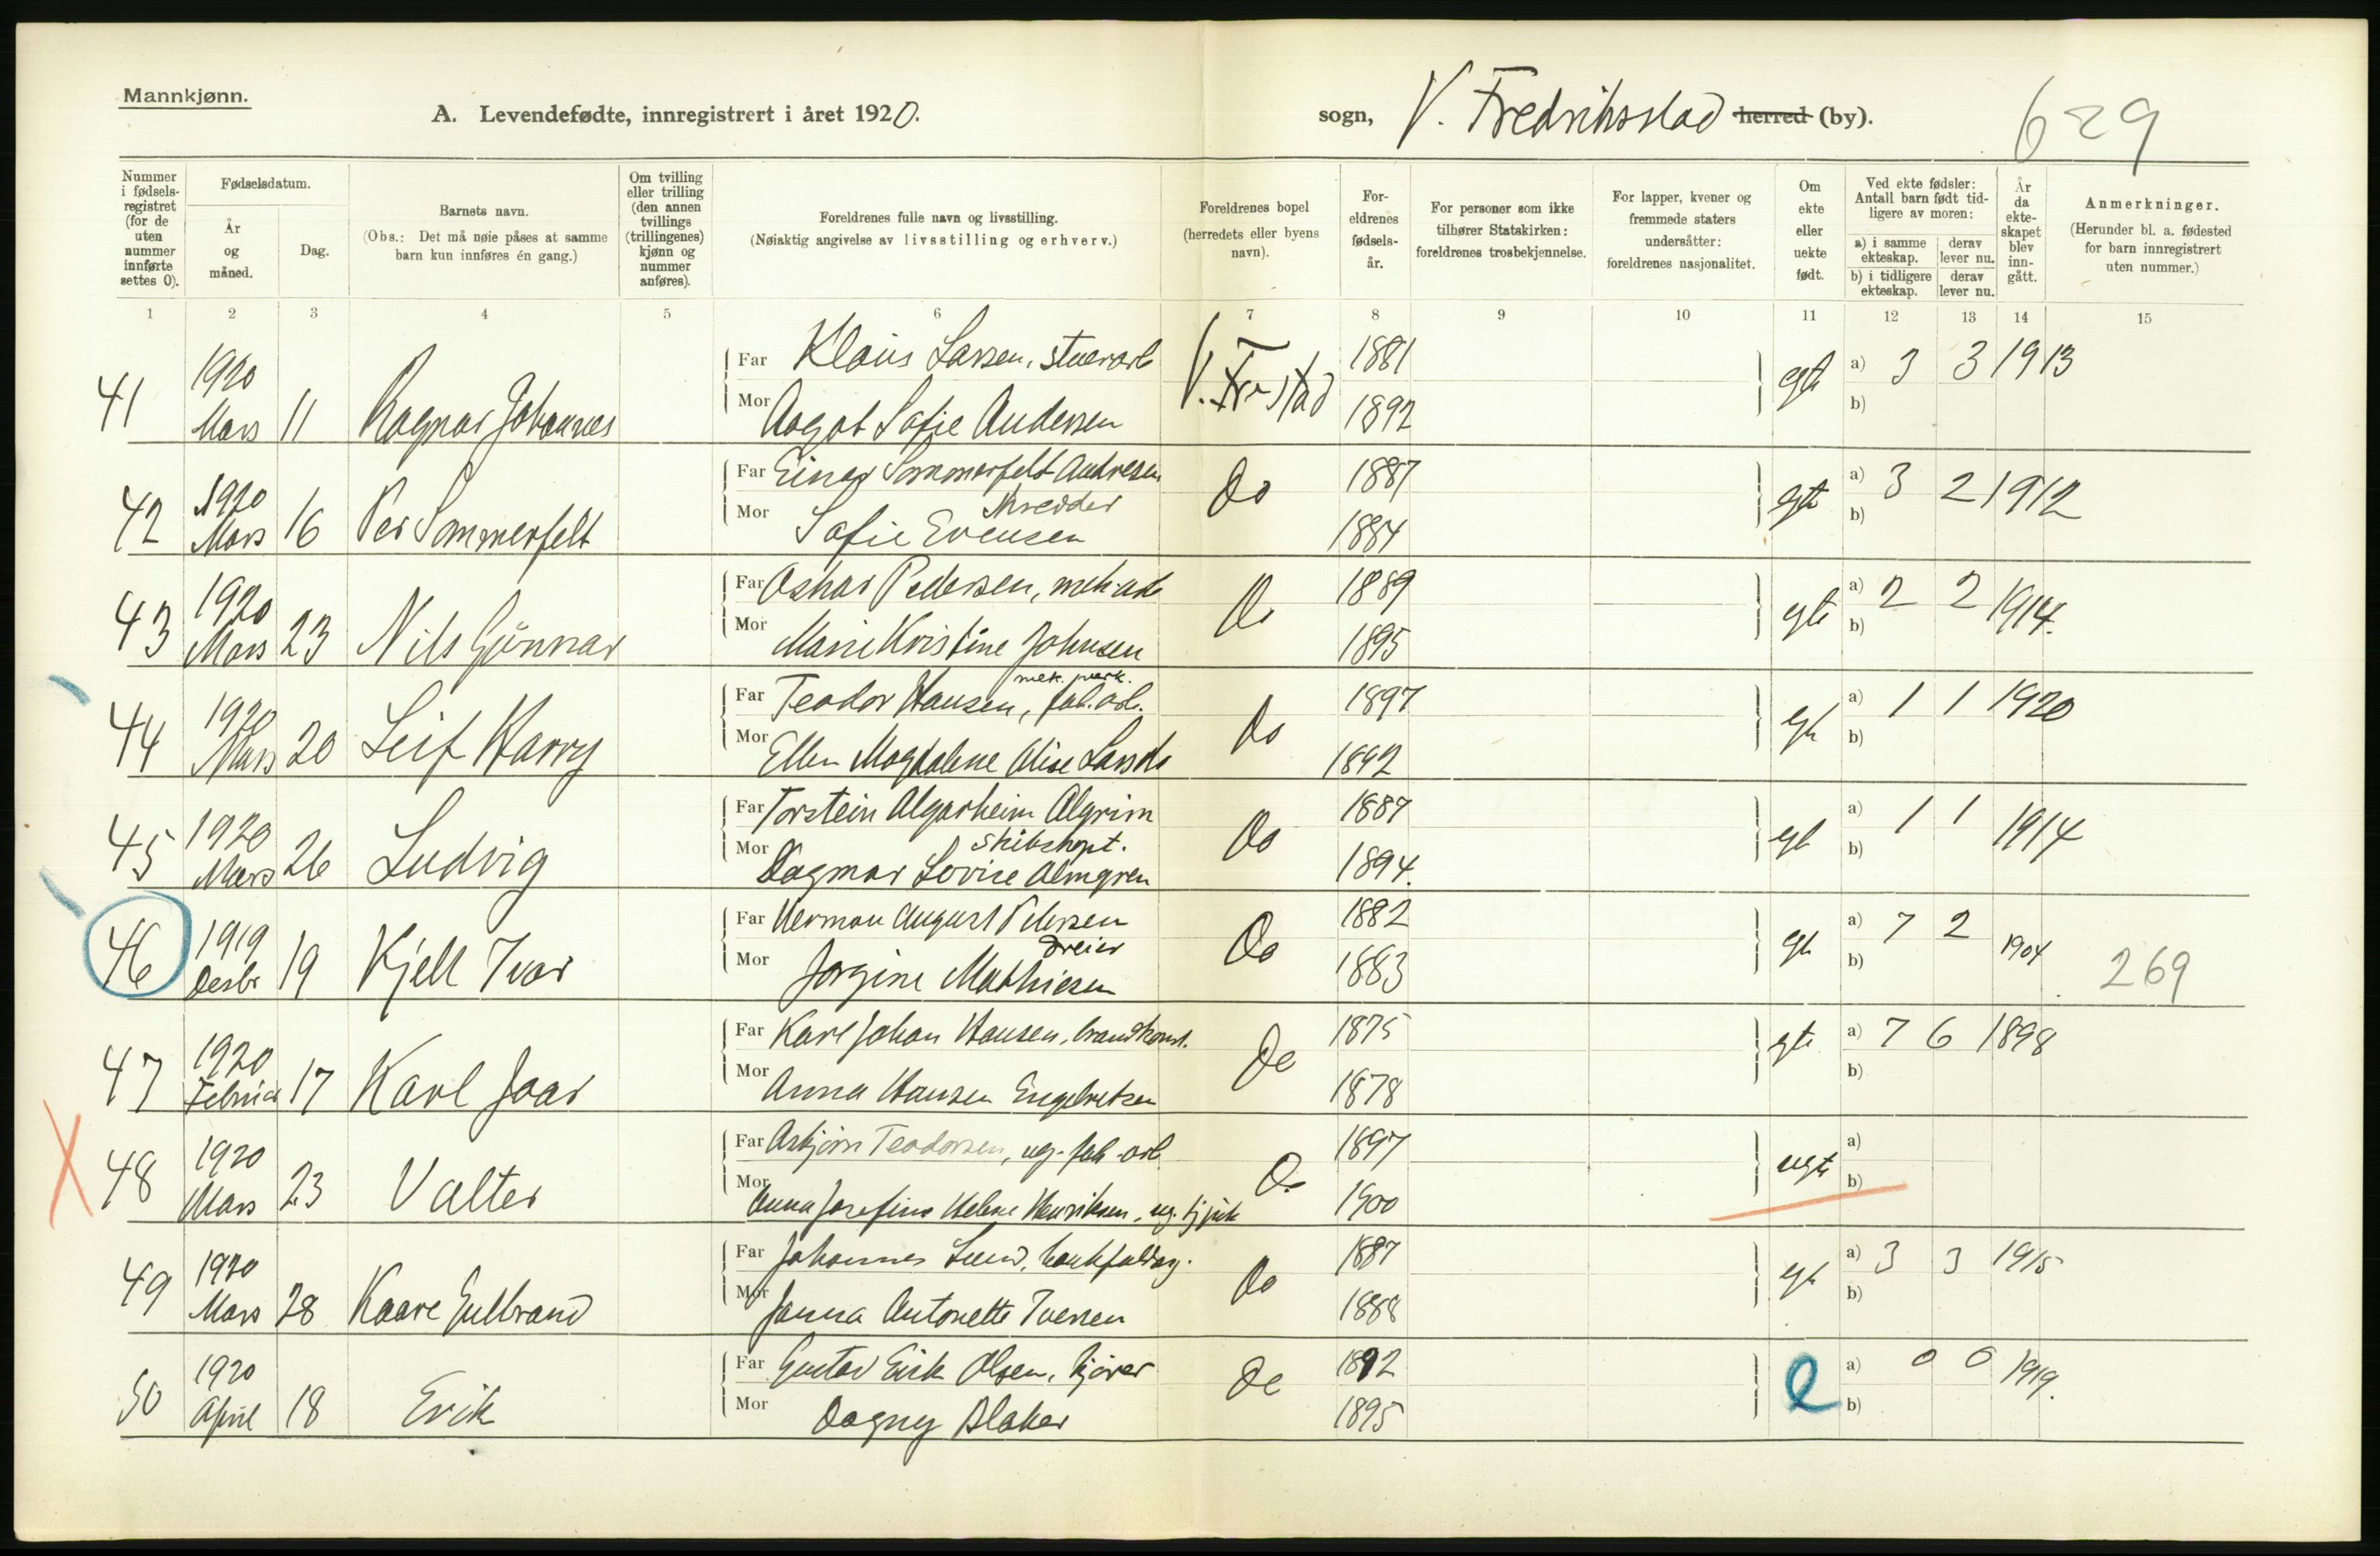 Mannkjønn.
A. Levendefødte, innregistrert i året 1920.
sogn, V. Fredriksstad herred (by).
629
Nummer i fødselsregistret (for de uten nummer innførte settes 0).
Fødselsdatum.
År og måned.
Dag.
Barnets navn.
(Obs.: Det må nøie påses at samme barn kun innføres én gang.)
Om tvilling eller trilling (den annen tvillings (trillingenes) kjønn og nummer anføres).
Foreldrenes fulle navn og livsstilling.
(Nøiaktig angivelse av livsstilling og erhverv.)
Foreldrenes bopel (herredets eller byens navn).
Foreldrenes fødselsår.
For personer som ikke tilhører Statskirken: foreldrenes trosbekjennelse.
For lapper, kvener og fremmede staters undersåtter: foreldrenes nasjonalitet.
Om ekte eller uekte født.
Ved ekte fødsler: Antall barn født tidligere av moren:
a) i samme ekteskap.
derav lever nu.
b) i tidligere ekteskap.
derav lever nu.
År da ekteskapet blev inngått.
Anmerkninger.
(Herunder bl. a. fødested for barn innregistrert uten nummer.)
1 2 3 4 5 6 7 8 9 10 11 12 13 14 15
41 1920 Mars 11 Ragnar Johannes
Far Klaus Larsen, stuerarb V. Fr.stad 1881 egte a) 3 3 1913
Mor Aagot Sofie Andersen 1892 b)
42 1920 Mars 16 Per Sommerfelt
Far Einar Sommerfelt Andresen Do 1887 egte a) 3 2 1912
skredder
Mor Sofie Evensen 1884 b)
43 1920 Mars 23 Nils Gunnar
Far Oskar Pedersen, mek. arb Do 1889 egte a) 2 2 1914.
Mor Marie Kristine Johnsen 1895 b)
44 1920 Mars 20 Leif Harry
mek. verk.
Far Teodor Hansen, fab. arb. Do 1897 egte a) 1 1 1920
Mor Ellen Magdalene Alise 1892 b)
45 1920 Mars 26 Ludvig
Far Torstein Algarheim Algrim Do 1887 egt a) 1 1 1914
Skibskapt.
Mor Dagmar Lovise Almgren 1894. b)
46 1919 Desbr 19 Kjell Ivar
Far Herman August Petersen Do 1882 egte a) 7 2 1904
dreier
Mor Jørgine Mathiesen 1883 b) 269
47 1920 Februar 17 Karl Joar
Far Karl Johan Hansen, brandkonst. Do 1875 egte a) 7 6 1898
Mor Anna Hansen Engebretsen 1878 b)
48 1920 Mars 23 Valter
Far Asbjørn Teodorsen, ug. fab. arb Do 1897 uegte a)
Mor Anna Josefine Helene Henriksen, ug. tjpik 1900 b)
49 1920 Mars 28 Kaare Gulbrand
Far Johannes Lund, bankfuldm. Do 1887 egte a) 3 3 1915
Mor Janna Antonette Iversen 1888 b)
50 1920 April 18 Erik
Far Gustav Eirik Olsen, kjører Do 1892 e a) 0 0 1919.
Mor Dagny Blaker 1895 b)